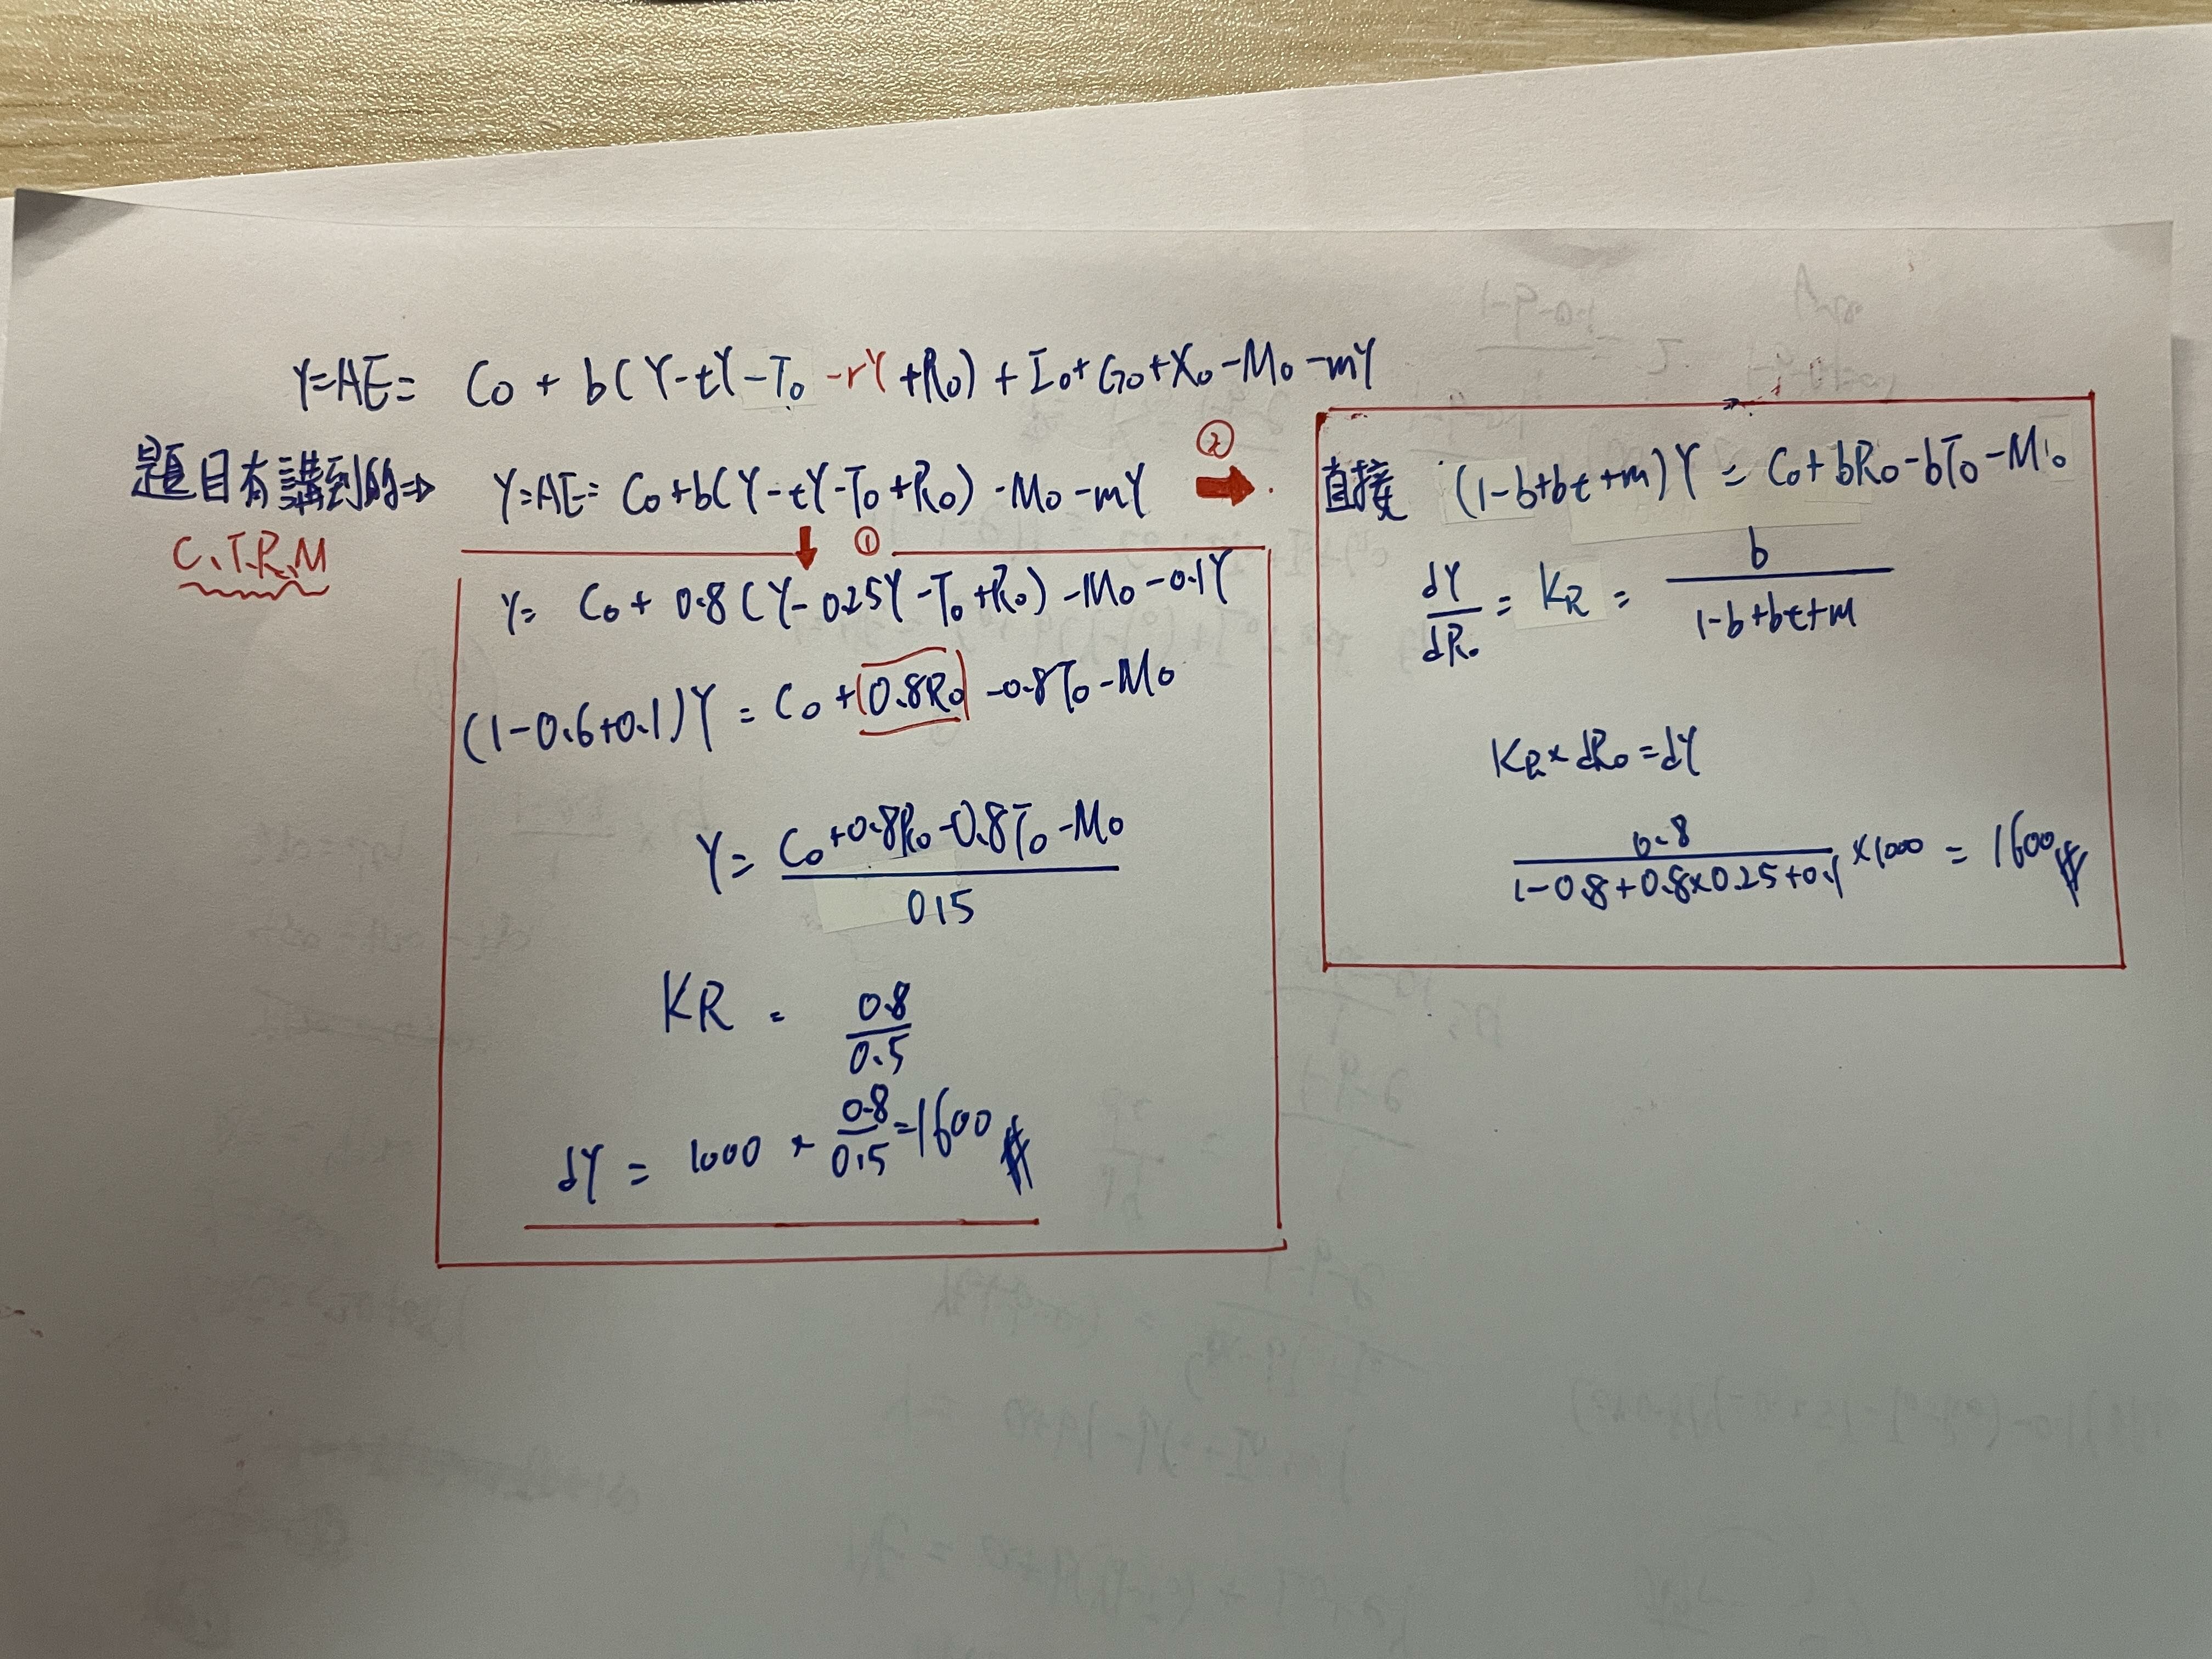 Y=AE= C₀ + b(Y-tY-T₀-rY+R₀)+I₀+G₀+X₀-M₀-mY
題目有講到的⇒ Y=AE= C₀+b(Y-tY-T₀+R₀)-M₀-mY ②
C、T、R、M
①
Y= C₀+0.8(Y-0.25Y-T₀+R₀)-M₀-0.1Y
(1-0.6+0.1)Y = C₀+0.8R₀-0.8T₀-M₀
Y= (C₀+0.8R₀-0.8T₀-M₀)/0.5
KR = 0.8/0.5
dY = 1000 × 0.8/0.5=1600#
直接 (1-b+bt+m)Y = C₀+bR₀-bT₀-M₀
dY/dR₀ = K_R = b/(1-b+bt+m)
K_R×dR₀=dY
0.8/(1-0.8+0.8×0.25+0.1) ×1000 = 1600#